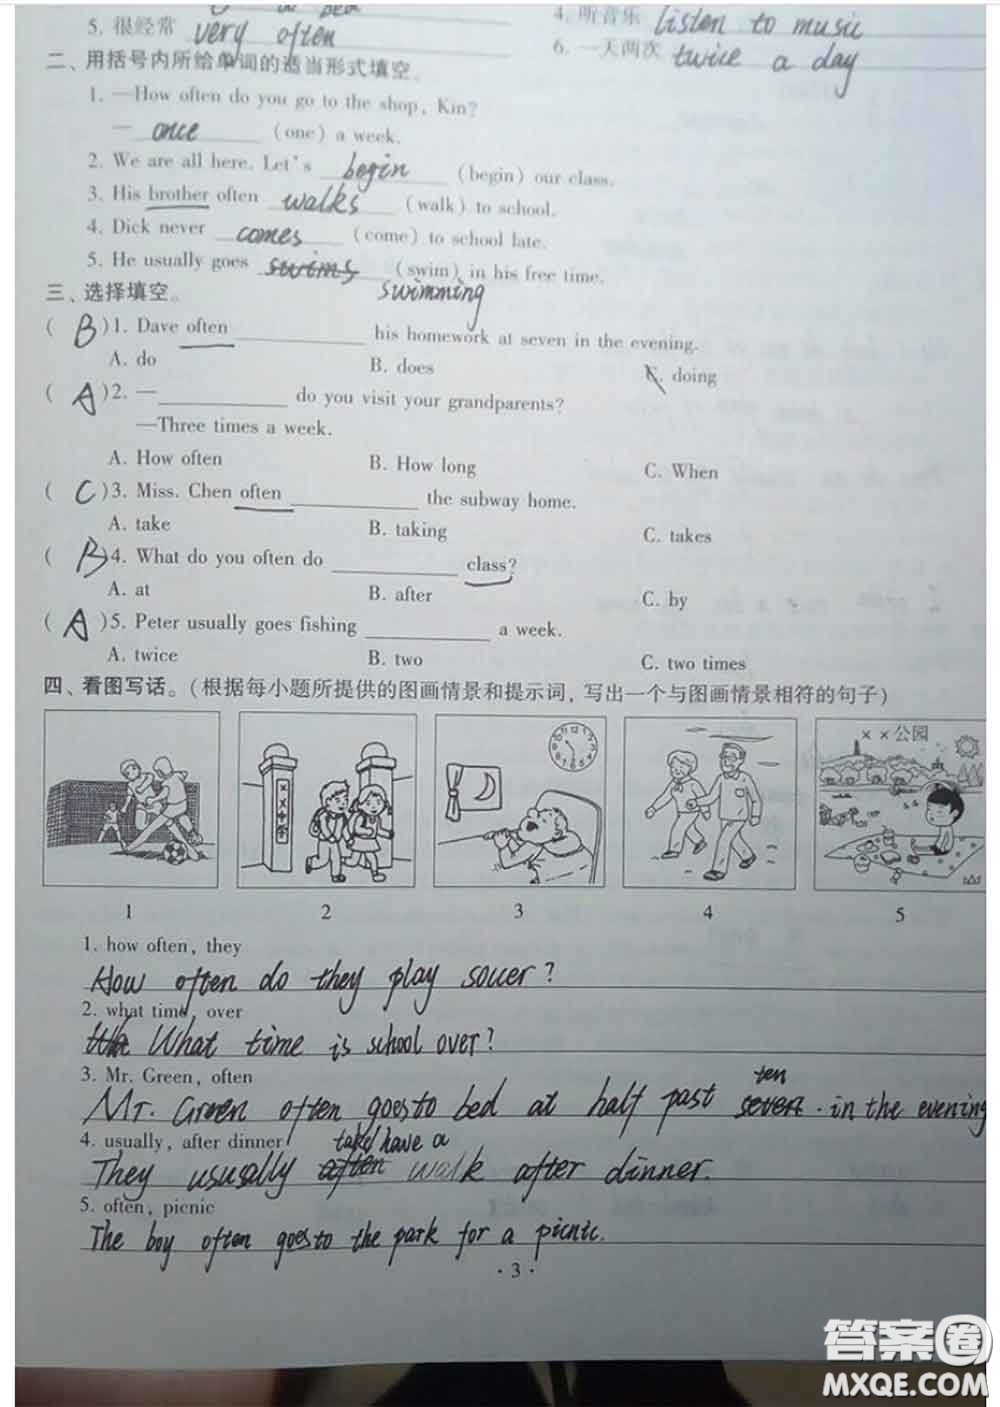 5. 很经常 very often
4. 听音乐 listen to music
6. 一天两次 twice a day
二、用括号内所给单词的适当形式填空。
1. —How often do you go to the shop, Kin?
— once (one) a week.
2. We are all here. Let's begin (begin) our class.
3. His brother often walks (walk) to school.
4. Dick never comes (come) to school late.
5. He usually goes swims (swim) in his free time.
swimming
三、选择填空。
( B )1. Dave often ________ his homework at seven in the evening.
A. do B. does C. doing
( A )2. —________ do you visit your grandparents?
—Three times a week.
A. How often B. How long C. When
( C )3. Miss. Chen often ________ the subway home.
A. take B. taking C. takes
( B )4. What do you often do ________ class?
A. at B. after C. by
( A )5. Peter usually goes fishing ________ a week.
A. twice B. two C. two times
四、看图写话。(根据每小题所提供的图画情景和提示词,写出一个与图画情景相符的句子)
××公园
1 2 3 4 5
1. how often, they
How often do they play soccer?
2. what time, over
What time is school over?
3. Mr. Green, often
ten
Mr. Green often goes to bed at half past seven. in the evening
4. usually, after dinner take/have a
They usually often walk after dinner.
5. often, picnic
The boy often goes to the park for a picnic.
·3·
答案圈
MXQE.COM